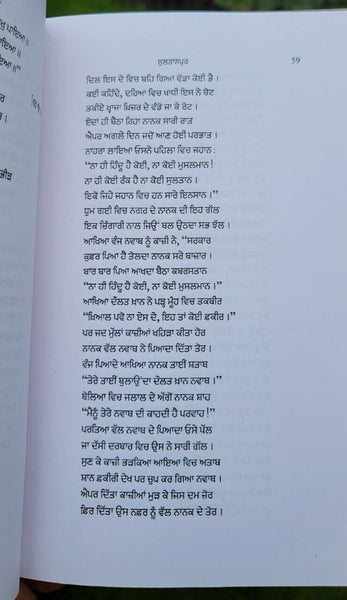 ਸੁਲਤਾਨਪੁਰ 59
ਦਿਲ ਇਸ ਦੇ ਵਿਚ ਬਹਿ ਗਿਆ ਵੱਡਾ ਕੋਈ ਭੈ।
ਕਈ ਕਹਿੰਦੇ, ਦਰਿਆ ਵਿਚ ਖਾਧੀ ਇਸ ਨੇ ਚੋਟ
ਤਕੀਏ ਖ੍ਵਾਜਾ ਖ਼ਿਜ਼ਰ ਦੇ ਵੱਡੋ ਜਾ ਕੇ ਰੋਟ।
ਏਦਾਂ ਹੀ ਬੈਠਾ ਰਿਹਾ ਨਾਨਕ ਸਾਰੀ ਰਾਤ
ਐਪਰ ਅਗਲੇ ਦਿਨ ਜਦੋਂ ਆਣ ਹੋਈ ਪਰਭਾਤ।
ਨਾਹਰਾ ਲਾਇਆ ਓਸਨੇ ਪਹਿਲਾ ਵਿਚ ਜਹਾਨ :
“ਨਾ ਹੀ ਹਿੰਦੂ ਹੈ ਕੋਈ, ਨਾ ਕੋਈ ਮੁਸਲਮਾਨ!
ਨਾ ਹੀ ਕੋਈ ਰੰਕ ਹੈ ਨਾ ਕੋਈ ਸੁਲਤਾਨ।
ਇਕੋ ਜਿਹੇ ਜਹਾਨ ਵਿਚ ਹਨ ਸਾਰੇ ਇਨਸਾਨ।”
ਧੁਮ ਗਈ ਵਿਚ ਨਗਰ ਦੇ ਨਾਨਕ ਦੀ ਇਹ ਗੱਲ
ਇਕ ਚਿੰਗਾਰੀ ਨਾਲ ਜਿਉਂ ਬਲ ਉਠਦਾ ਸਭ ਝੱਲ।
ਆਖਿਆ ਵੰਜ ਨਵਾਬ ਨੂੰ ਕਾਜ਼ੀ ਨੇ, “ਸਰਕਾਰ
ਕੁਫ਼ਰ ਪਿਆ ਹੈ ਤੋਲਦਾ ਨਾਨਕ ਸਰੇ ਬਾਜ਼ਾਰ।
ਬਾਰ ਬਾਰ ਪਿਆ ਆਖਦਾ ਬੈਠਾ ਕਬਰਸਤਾਨ
“ਨਾ ਹੀ ਹਿੰਦੂ ਹੈ ਕੋਈ, ਨਾ ਕੋਈ ਮੁਸਲਮਾਨ।”
ਆਖਿਆ ਦੌਲਤ ਖ਼ਾਨ ਨੇ ਪੜ੍ਹ ਮੂੰਹ ਵਿਚ ਤਕਬੀਰ
“ਖ਼ਿਆਲ ਪਵੋ ਨਾ ਏਸ ਦੇ, ਇਹ ਤਾਂ ਕੋਈ ਫ਼ਕੀਰ।”
ਪਰ ਜਦ ਮੁੱਲਾਂ ਕਾਜ਼ੀਆਂ ਖਹਿੜਾ ਕੀਤਾ ਹੋਰ
ਨਾਨਕ ਵੱਲ ਨਵਾਬ ਨੇ ਪਿਆਦਾ ਦਿੱਤਾ ਤੋਰ।
ਵੰਜ ਪਿਆਦੇ ਆਖਿਆ ਨਾਨਕ ਤਾਈਂ ਸ਼ਤਾਬ
“ਤੇਰੇ ਤਾਈਂ ਬੁਲਾਉਂਦਾ ਦੌਲਤ ਖ਼ਾਨ ਨਵਾਬ।”
ਬੋਲਿਆ ਵਿਚ ਜਲਾਲ ਦੇ ਅੱਗੋਂ ਨਾਨਕ ਸ਼ਾਹ
“ਮੈਨੂੰ ਤੇਰੇ ਨਵਾਬ ਦੀ ਕਾਹਦੀ ਹੈ ਪਰਵਾਹ!”
ਪਰਤਿਆ ਵੱਲ ਨਵਾਬ ਦੇ ਪਿਆਦਾ ਓਸੇ ਪੱਲ
ਜਾ ਦੱਸੀ ਦਰਬਾਰ ਵਿਚ ਉਸ ਨੇ ਸਾਰੀ ਗੱਲ।
ਸੁਣ ਕੇ ਕਾਜ਼ੀ ਭੜਕਿਆ ਆਇਆ ਵਿਚ ਅਤਾਬ
ਸ਼ਾਨ ਫ਼ਕੀਰੀ ਦੇਖ ਪਰ ਚੁਪ ਕਰ ਗਿਆ ਨਵਾਬ।
ਐਪਰ ਦਿੱਤਾ ਕਾਜ਼ੀਆਂ ਮੁੜ ਕੇ ਜਿਸ ਦਮ ਜ਼ੋਰ
ਫ਼ਿਰ ਦਿੱਤਾ ਉਸ ਨਫ਼ਰ ਨੂੰ ਵੱਲ ਨਾਨਕ ਦੇ ਤੋਰ।